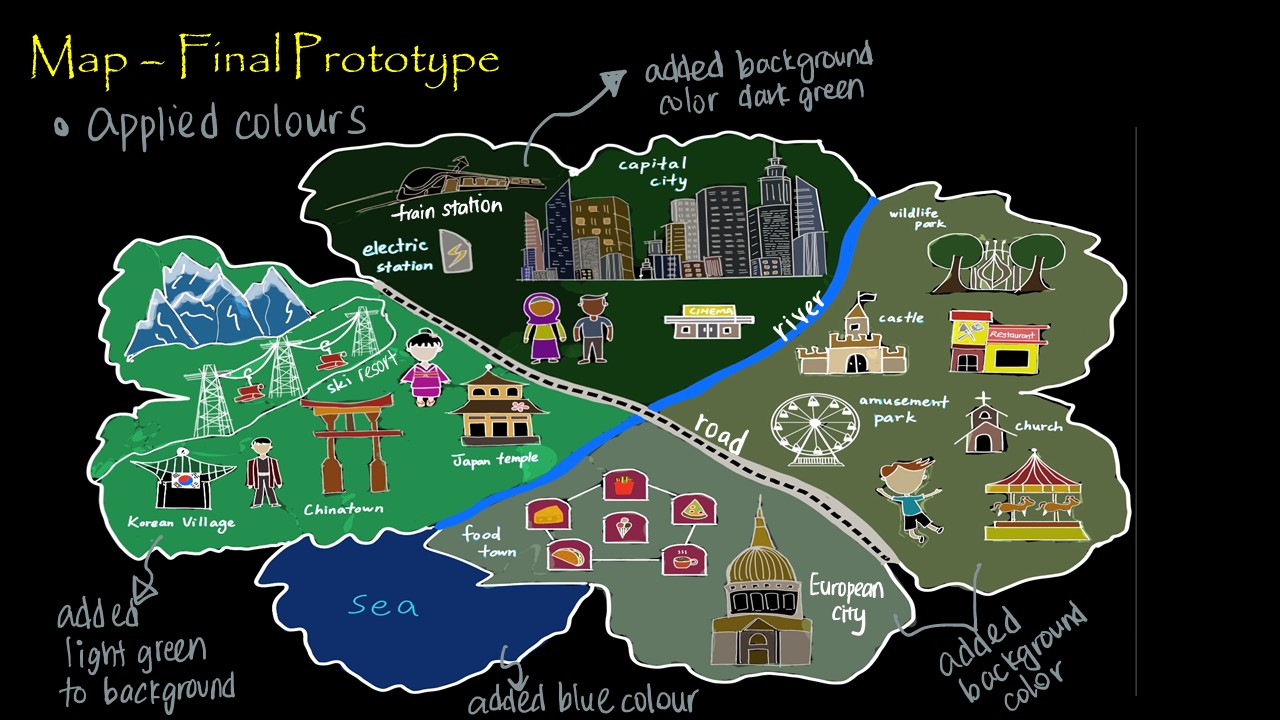 Map – Final Prototype
• Applied colours
added background
color dark green
capital
city
train station
electric
station
wildlife
park
CINEMA
river
castle
Restaurant
ski resort
amusement
park
church
road
Japan temple
Chinatown
Korean Village
food
town
European
city
sea
added
light green
to background
added blue colour
added
background
color